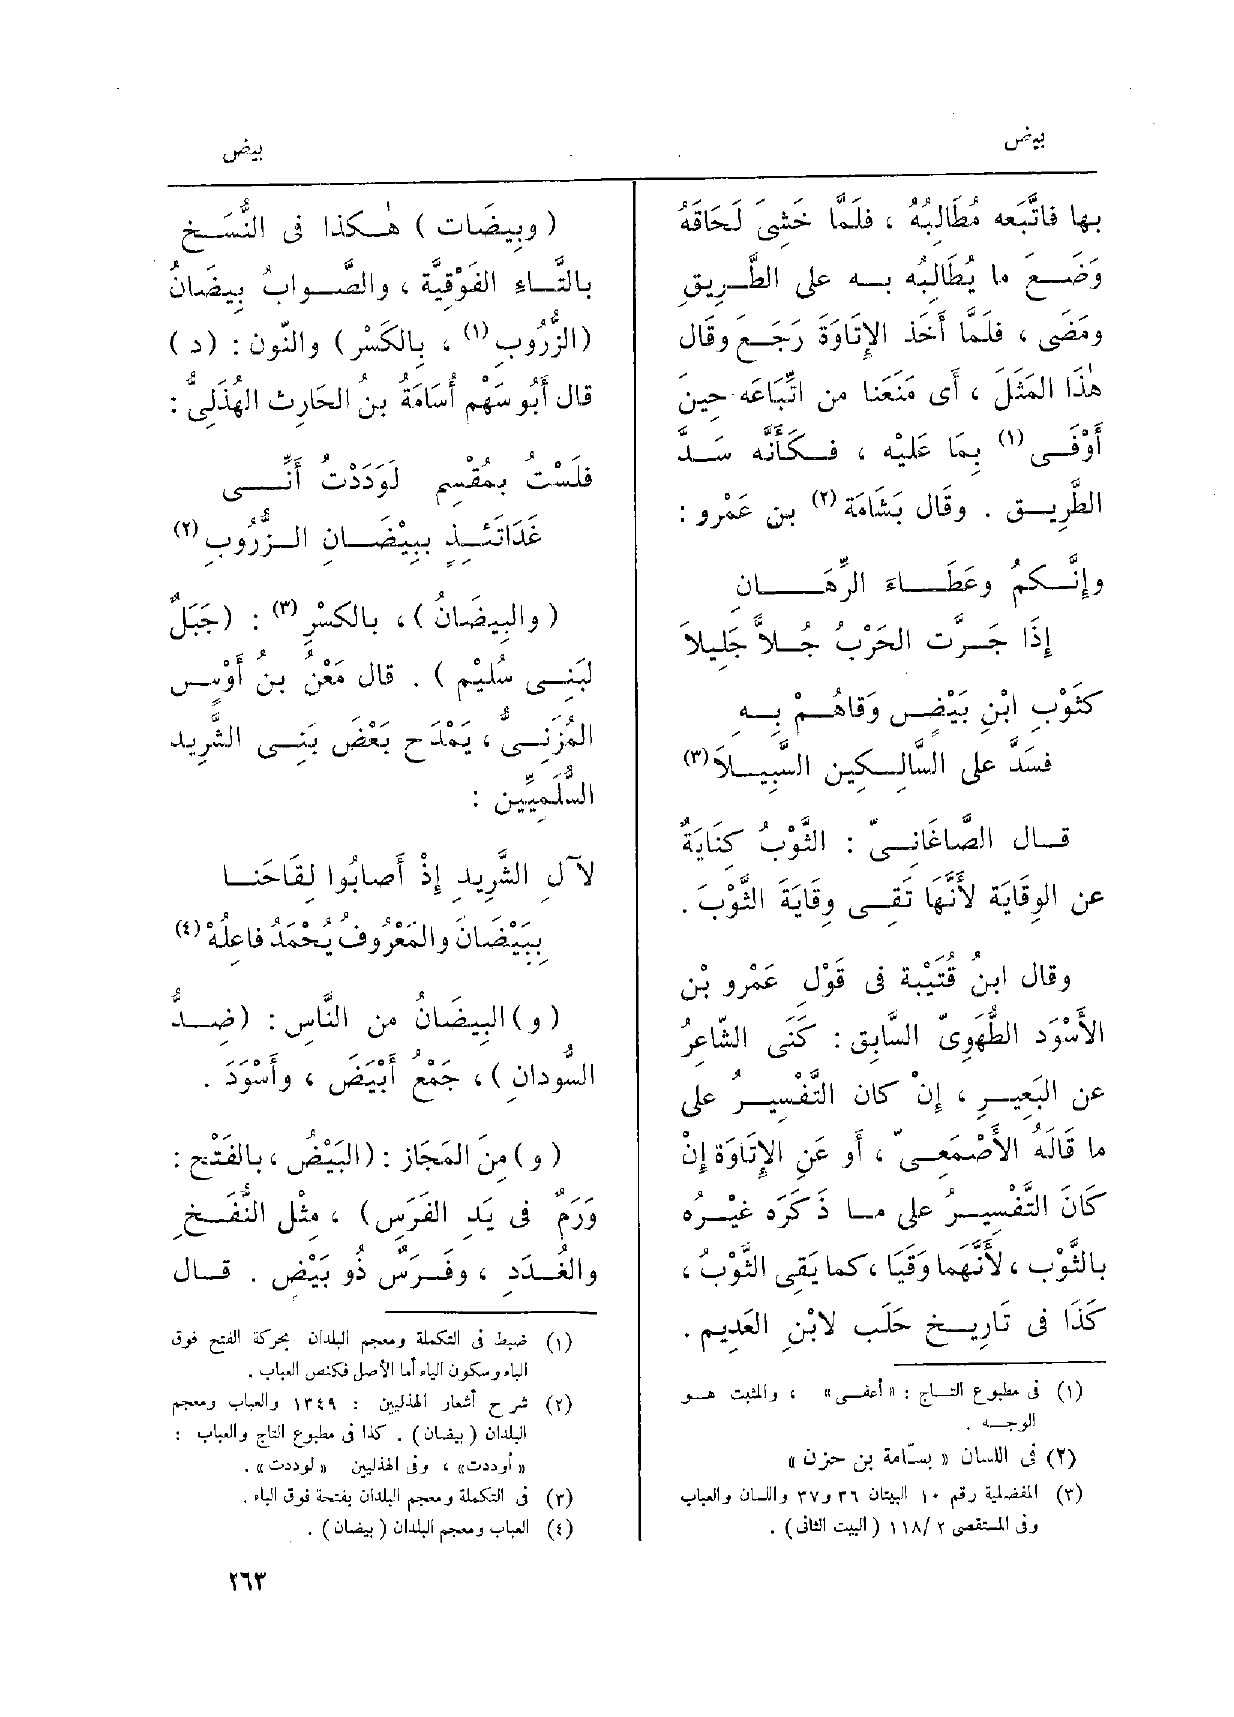 بيض
بها فاتَّبَعه مُطَالِبُهُ ، فلَمَّا خَشِىَ لَحَاقَهُ
وَضَـع ما يُطَالِبُه بـه على الطَّـرِيقِ
ومَضَى ، فلَمَّا أَخَذ الإِتَاوَةَ رَجَـعَ وقَال
هٰذَا المَثَلَ ، أَى مَنَعَنا من اتِّبَاعَه حِينَ
أَوْفَـى (١) بِمَا عَلَيْه ، فـكَأَنَّه سَـدَّ
الطَّرِيـق . وقَال بَشَامَة (٢) بن عَمْرو :
وإِنَّـكمُ وعَطَـاءَ الرِّهَـانِ
إِذَا جَـرَّت الحَرْبُ جُـلاًّ جَلِيلاَ
كثَوْبِ ابْنِ بَيْضٍ وَقاهُـمْ بِـه
فسَدَّ على السَّالِـكِين السَّبِيـلاَ (٣)
قـال الصَّاغَانِـىّ : الثَّوْبُ كِنَايَةٌ
عن الوِقَايَة لأَنَّهَا تَقِـى وِقَايَةَ الثَّوْبَ .
وقال ابنُ قُتَيْبة فى قَوْلِ عَمْرِو بْنِ
الأَسْوَد الطُّهَوِىّ السَّابِق : كَنَى الشّاعِرُ
عن البَعِيـرِ ، إِنْ كان التَّفْسِيـرُ على
ما قَالَهُ الأَصْمَعِـىّ ، أَو عَنِ الإِتَاوَة إِنْ
كَانَ التَّفْسِيـرُ على مـا ذَكَرَه غيْـرُه
بالثَّوْب ، لأَنَّهما وَقَيَا ، كما يَقِى الثَّوْبُ ،
كَذَا فى تَارِيـخ حَلَب لابْنِ العَدِيم .
(١) فى مطبوع التـاج : « أعفـى » ، والمثبت هـو
الوجـه .
(٢) فى اللسان « بسّامة بن حزن »
(٣) المفضلية رقم ١٠ البيتان ٣٦ و٣٧ واللسان والعباب
وفى المستقصى ٢ /١١٨ (البيت الثانى) .
بيض
( وبِيضَات ) هٰـكذا فى النُّسَـخِ
بالتَّـاءِ الفَوْقِيَّة ، والصَّـوابُ بِيضَانُ
(الزُّرُوبِ (١) ، بالكَسْرِ) والنّون : (د )
قال أَبُو سَهْمٍ أُسَامَةُ بنُ الحَارِث الهُذَلِىُّ :
فلَسْتُ بمُقْسِمٍ لَوَدَدْتُ أَنِّـى
غَدَاتَئِـذٍ بِبِيْضَـانِ الـزُّرُوبِ (٢)
( والبِيضَانُ )، بالكَسْرِ (٣) : (جَبَلٌ
لبَنِـى سُلَيْمٍ ) . قال مَعْنُ بنُ أَوْسٍ
المُزَنِـىُّ ، يَمْدَح بَعْضَ بَنِـى الشَّرِيد
السُّلَمِيِّين :
لآلِ الشَّرِيدِ إِذْ أَصابُوا لِقَاحَنـا
بِبَيْضَانَ والمَعْرُوفُ يُحْمَدُ فاعِلُهْ (٤)
( و) البِيضَانُ من النَّاسِ : (ضِـدُّ
السُّودانِ )، جَمْعُ أَبْيَضَ ، وأَسْوَدَ .
( و) مِنَ المَجَازِ : (البَيْضُ ، بالفَتْحِ :
وَرَمٌ فى يَدِ الفَرَسِ) ، مِثْل النُّفَـخِ
والغُـدَدِ ، وفَـرَسٌ ذُو بَيْضٍ . قـال
(١) ضبط فى التكملة ومعجم البلدان بحركة الفتح فوق
الباء وسكون الياء أما الأصل فكنص العباب .
(٢) شرح أشعار الهذليين : ١٣٤٩ والعباب ومعجم
البلدان ( بيضان ) . كذا فى مطبوع التاج والعباب :
« أوددت» ، وفى الهذليين « لوددت» .
(٣) فى التكملة ومعجم البلدان بفتحة فوق الباء .
(٤) العباب ومعجم البلدان ( بيضان ) .
٢٦٣